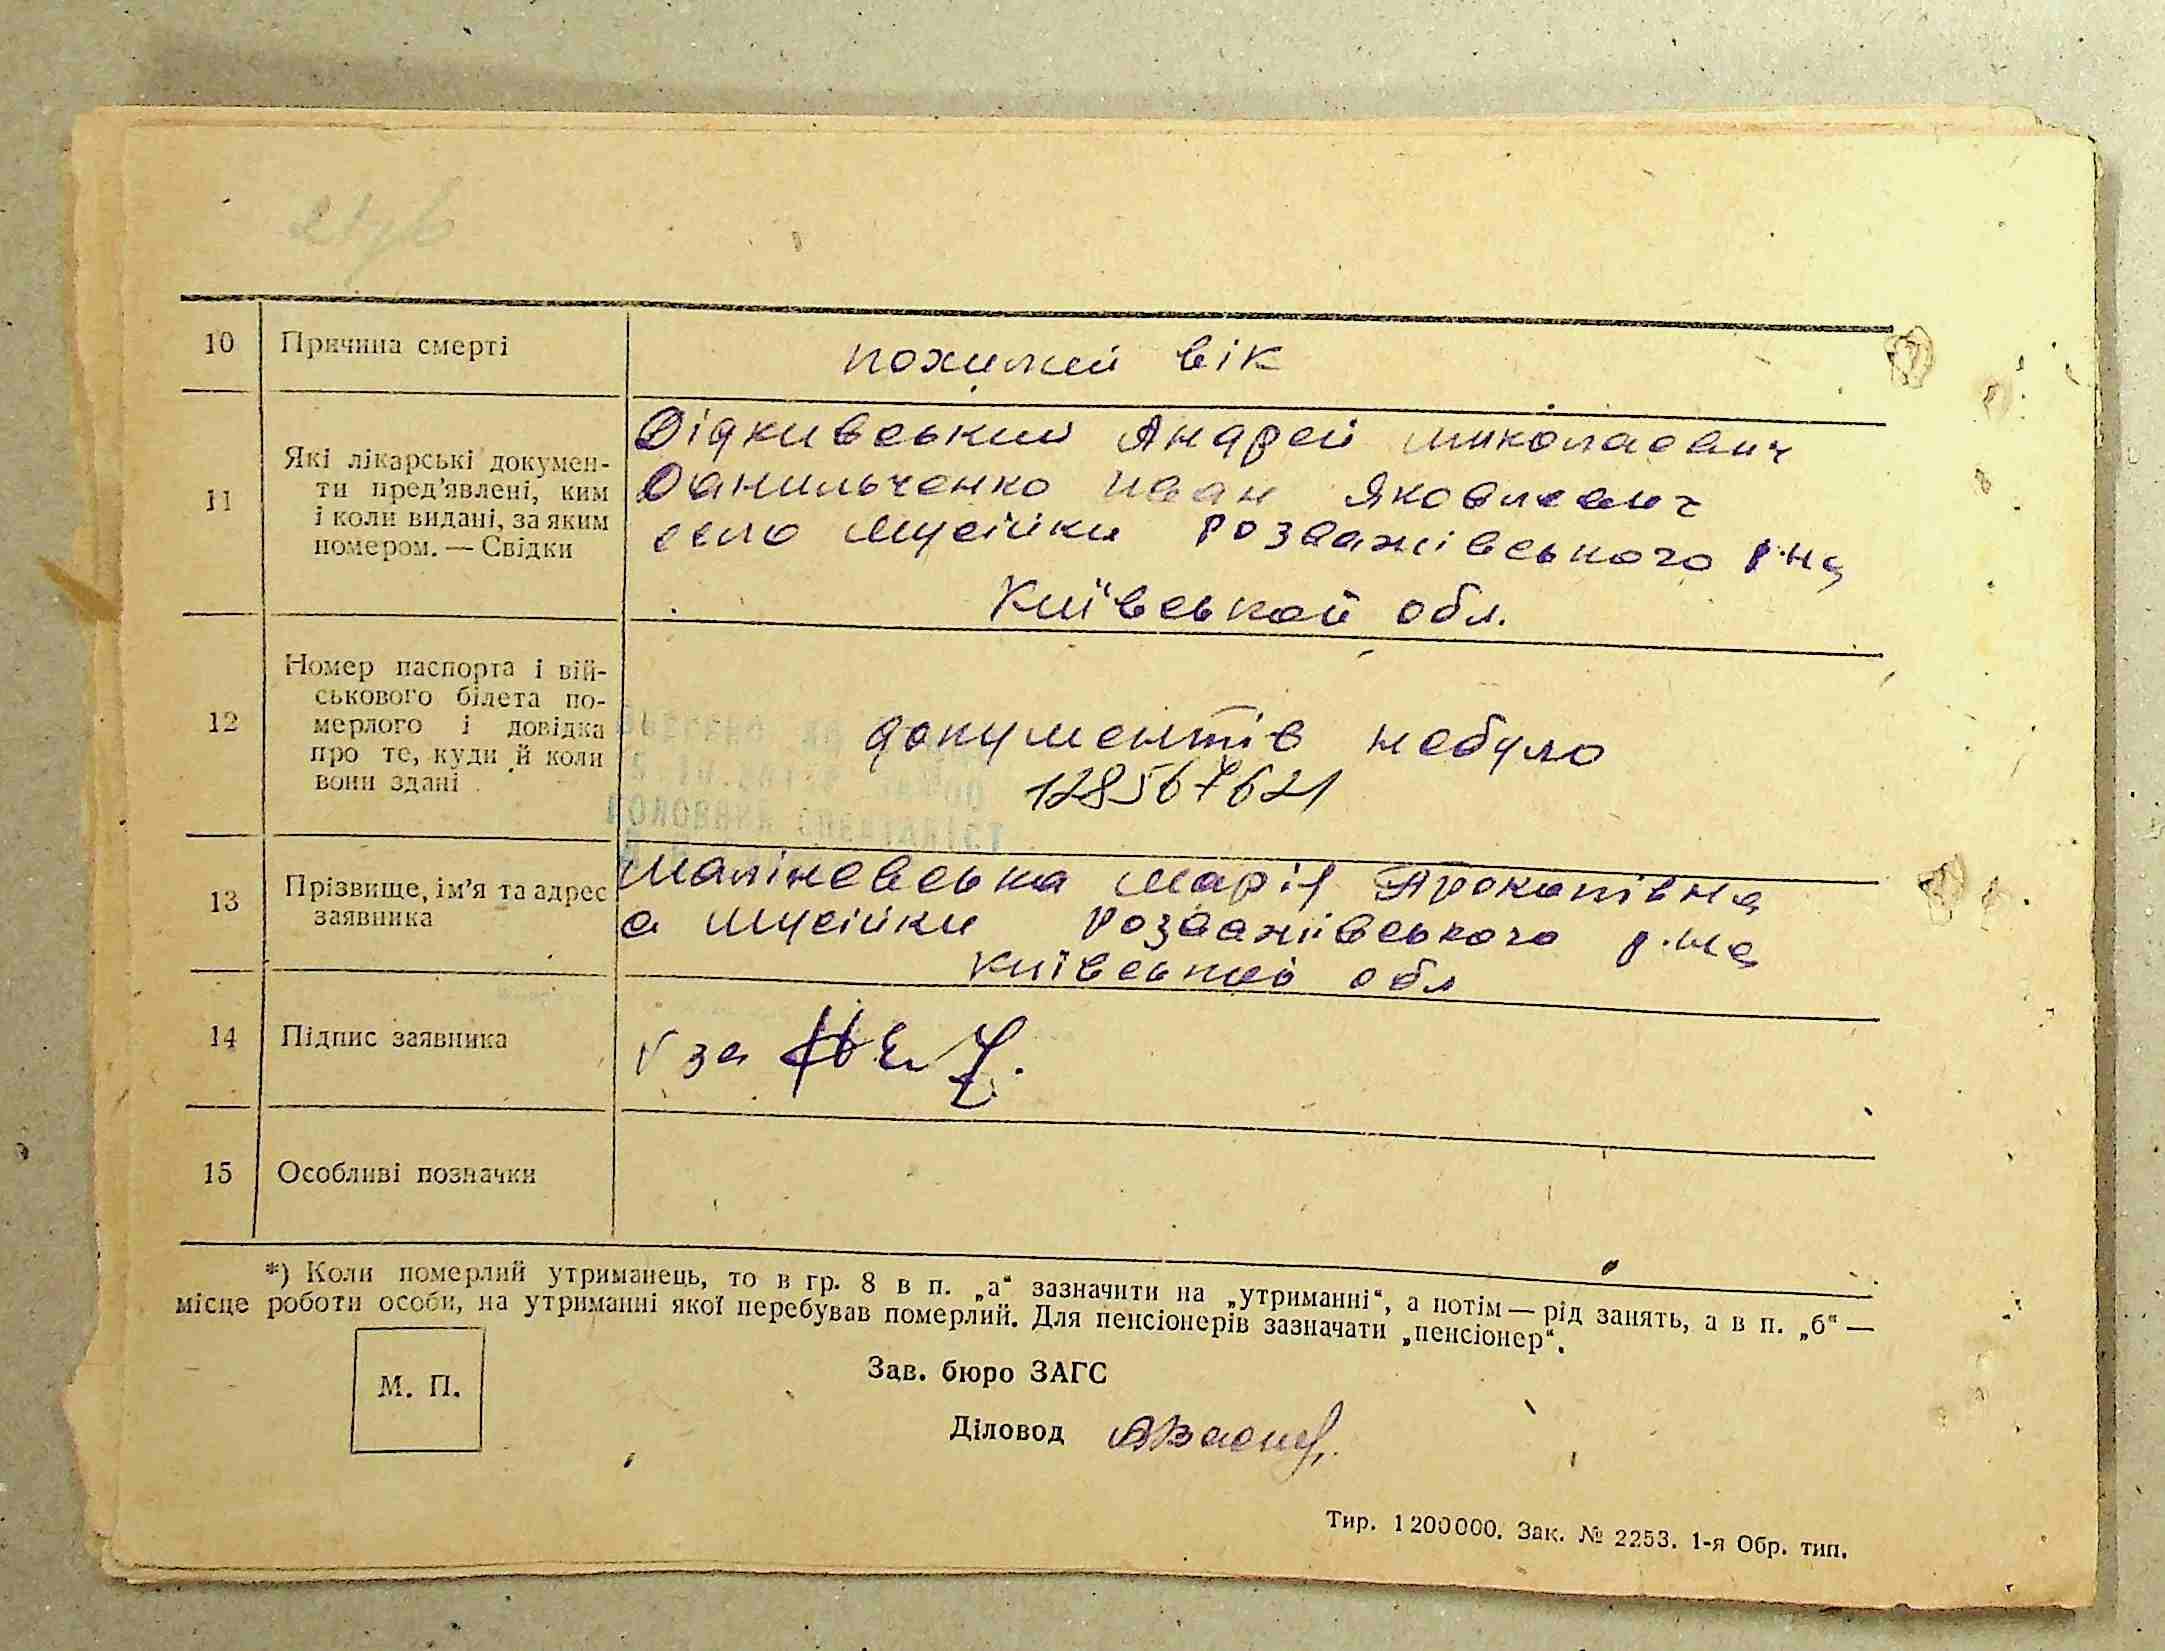 10 Причина смерті
похилий вік
11 Які лікарські докумен-
ти пред'явлені, ким
і коли видані, за яким
номером. — Свідки
Дідкивський Андрей Миколаевич
Данильченко Иван Яковлевич
село Мусійки Розважівського р-на
Київської обл.
12 Номер паспорта і вій-
ськового білета по-
мерлого і довідка
про те, куди й коли
вони здані
документів небуло
128567621
ГОЛОВНИЙ СПЕЦІАЛІСТ
13 Прізвище, ім'я та адрес
заявника
Маліневська Марія Прокопівна
с Мусійки Розважівського р-на
Київської обл
14 Підпис заявника
за
15 Особливі позначки
*) Коли померлий утриманець, то в гр. 8 в п. „а“ зазначити на „утриманні“, а потім — рід занять, а в п. „б“ —
місце роботи особи, на утриманні якої перебував померлий. Для пенсіонерів зазначати „пенсіонер“.
М. П.
Зав. бюро ЗАГС
Діловод
Тир. 1 200 000. Зак. № 2253. 1-я Обр. тип.